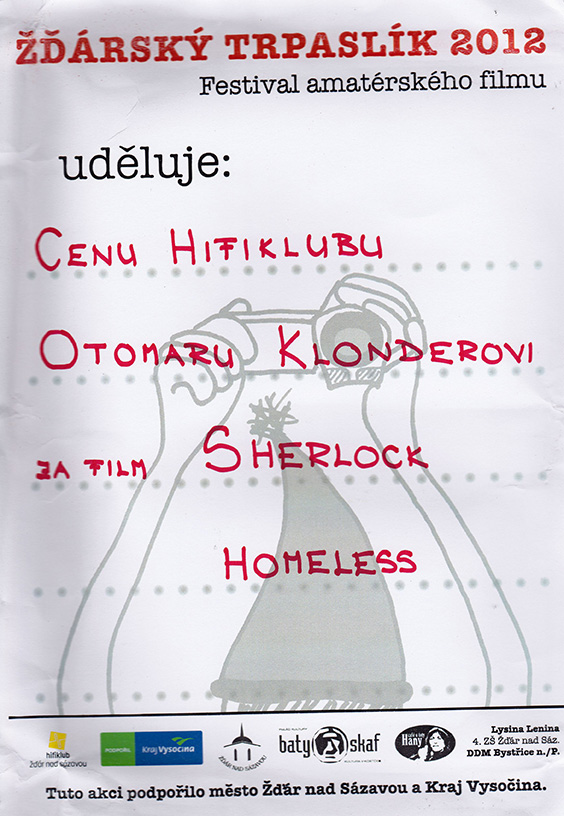 ŽĎÁRSKÝ TRPASLÍK 2012
Festival amatérského filmu
uděluje:
CENU HIFIKLUBU
OTOMARU KLONDEROVI
ZA FILM SHERLOCK
HOMELESS
hifiklub
žďár nad sázavou
PODPOŘIL
Kraj Vysočina
ŽĎÁR NAD SÁZAVOU
batyskaf
Hany
Lysina Lenina
4. ZŠ Žďár nad Sáz.
DDM Bystřice n./P.
Tuto akci podpořilo město Žďár nad Sázavou a Kraj Vysočina.